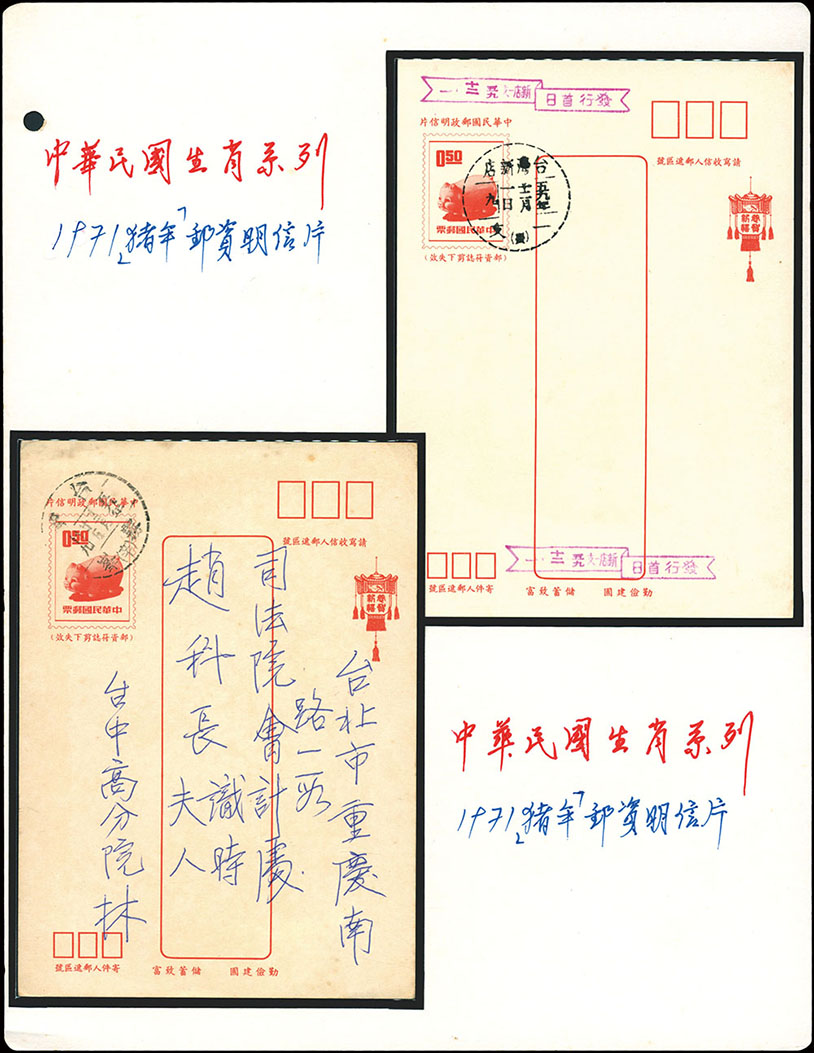 中華民國生肖系列
1971「猪年」郵資明信片
發行首日
片信明政郵國民華中
0.50
票郵國民華中
(效失下剪誌符資郵)
台灣新店
請寫收信人郵遞區號
恭賀新禧
發行首日
寄件人郵遞區號
勤儉建國 儲蓄致富
片信明政郵國民華中
0.50
票郵國民華中
(效失下剪誌符資郵)
請寫收信人郵遞區號
恭賀新禧
台北市重慶南
路一段
司法院會計處
趙科長識時
夫人
台中高分院林
寄件人郵遞區號
勤儉建國 儲蓄致富
中華民國生肖系列
1971「猪年」郵資明信片